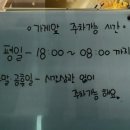 ○ 가게앞 주차가능 시간 ○
평일 - 18:00 ~ 08:00 까지
말 공휴일 - 시간상관 없이
주차가능 해요.